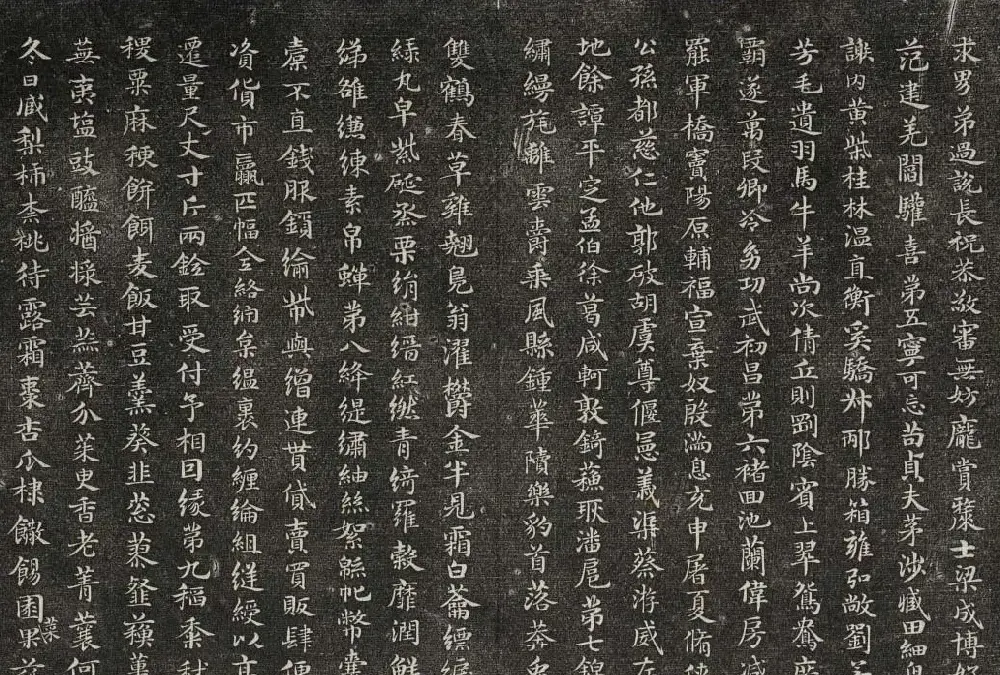 求男弟過說長祝恭敬審無妨龐賞士梁成博好
范建羌閻驩喜第五寧可忘苟貞夫茅涉臧田細兒
謝內黃柴桂林溫直衡奚驕叔邴勝箱雍弘敞劉
芳毛遺羽馬牛羊尚次倩丘則剛陰賓上翠鴛鴦庶
霸遂萬段卿冷幼功武初昌第六褚回池蘭偉房減
罷軍橋竇陽原輔福宣棄奴殷滿息充申屠夏脩俠
公孫都慈仁他郭破胡虞尊偃憲義渠蔡游威左
地餘譚平定孟伯徐葛咸軻敦錡蘇耿潘扈第七錦
繡縵旄離雲爵乘風縣鍾華隫樂豹首落莽兔
雙鶴春草雞翹鳧翁濯鬱金半見霜白䕬縹綟
綠丸皁紫硟烝栗絹紺縉紅繎青綺羅縠靡潤鮮
綈雒縑練素帛蟬第八絳緹繡紬絲絮緜帊幣囊
橐不直錢服鎖綸帶與繒連貰貸賣買販肆便
資貨市贏匹幅全絡納枲縕裹約纏綸組縌綬以高
遷量尺丈寸斤兩銓取受付予相因緣第九稻黍秫
稷粟麻粳餅餌麥飯甘豆羹葵韭蔥蓼韰蘇薑
蕪夷塩豉醯醬漿芸蒜薺介茱臾香老菁蘘何
冬日臧梨柿柰桃待露霜棗杏瓜棣饊餳園菜果蓏